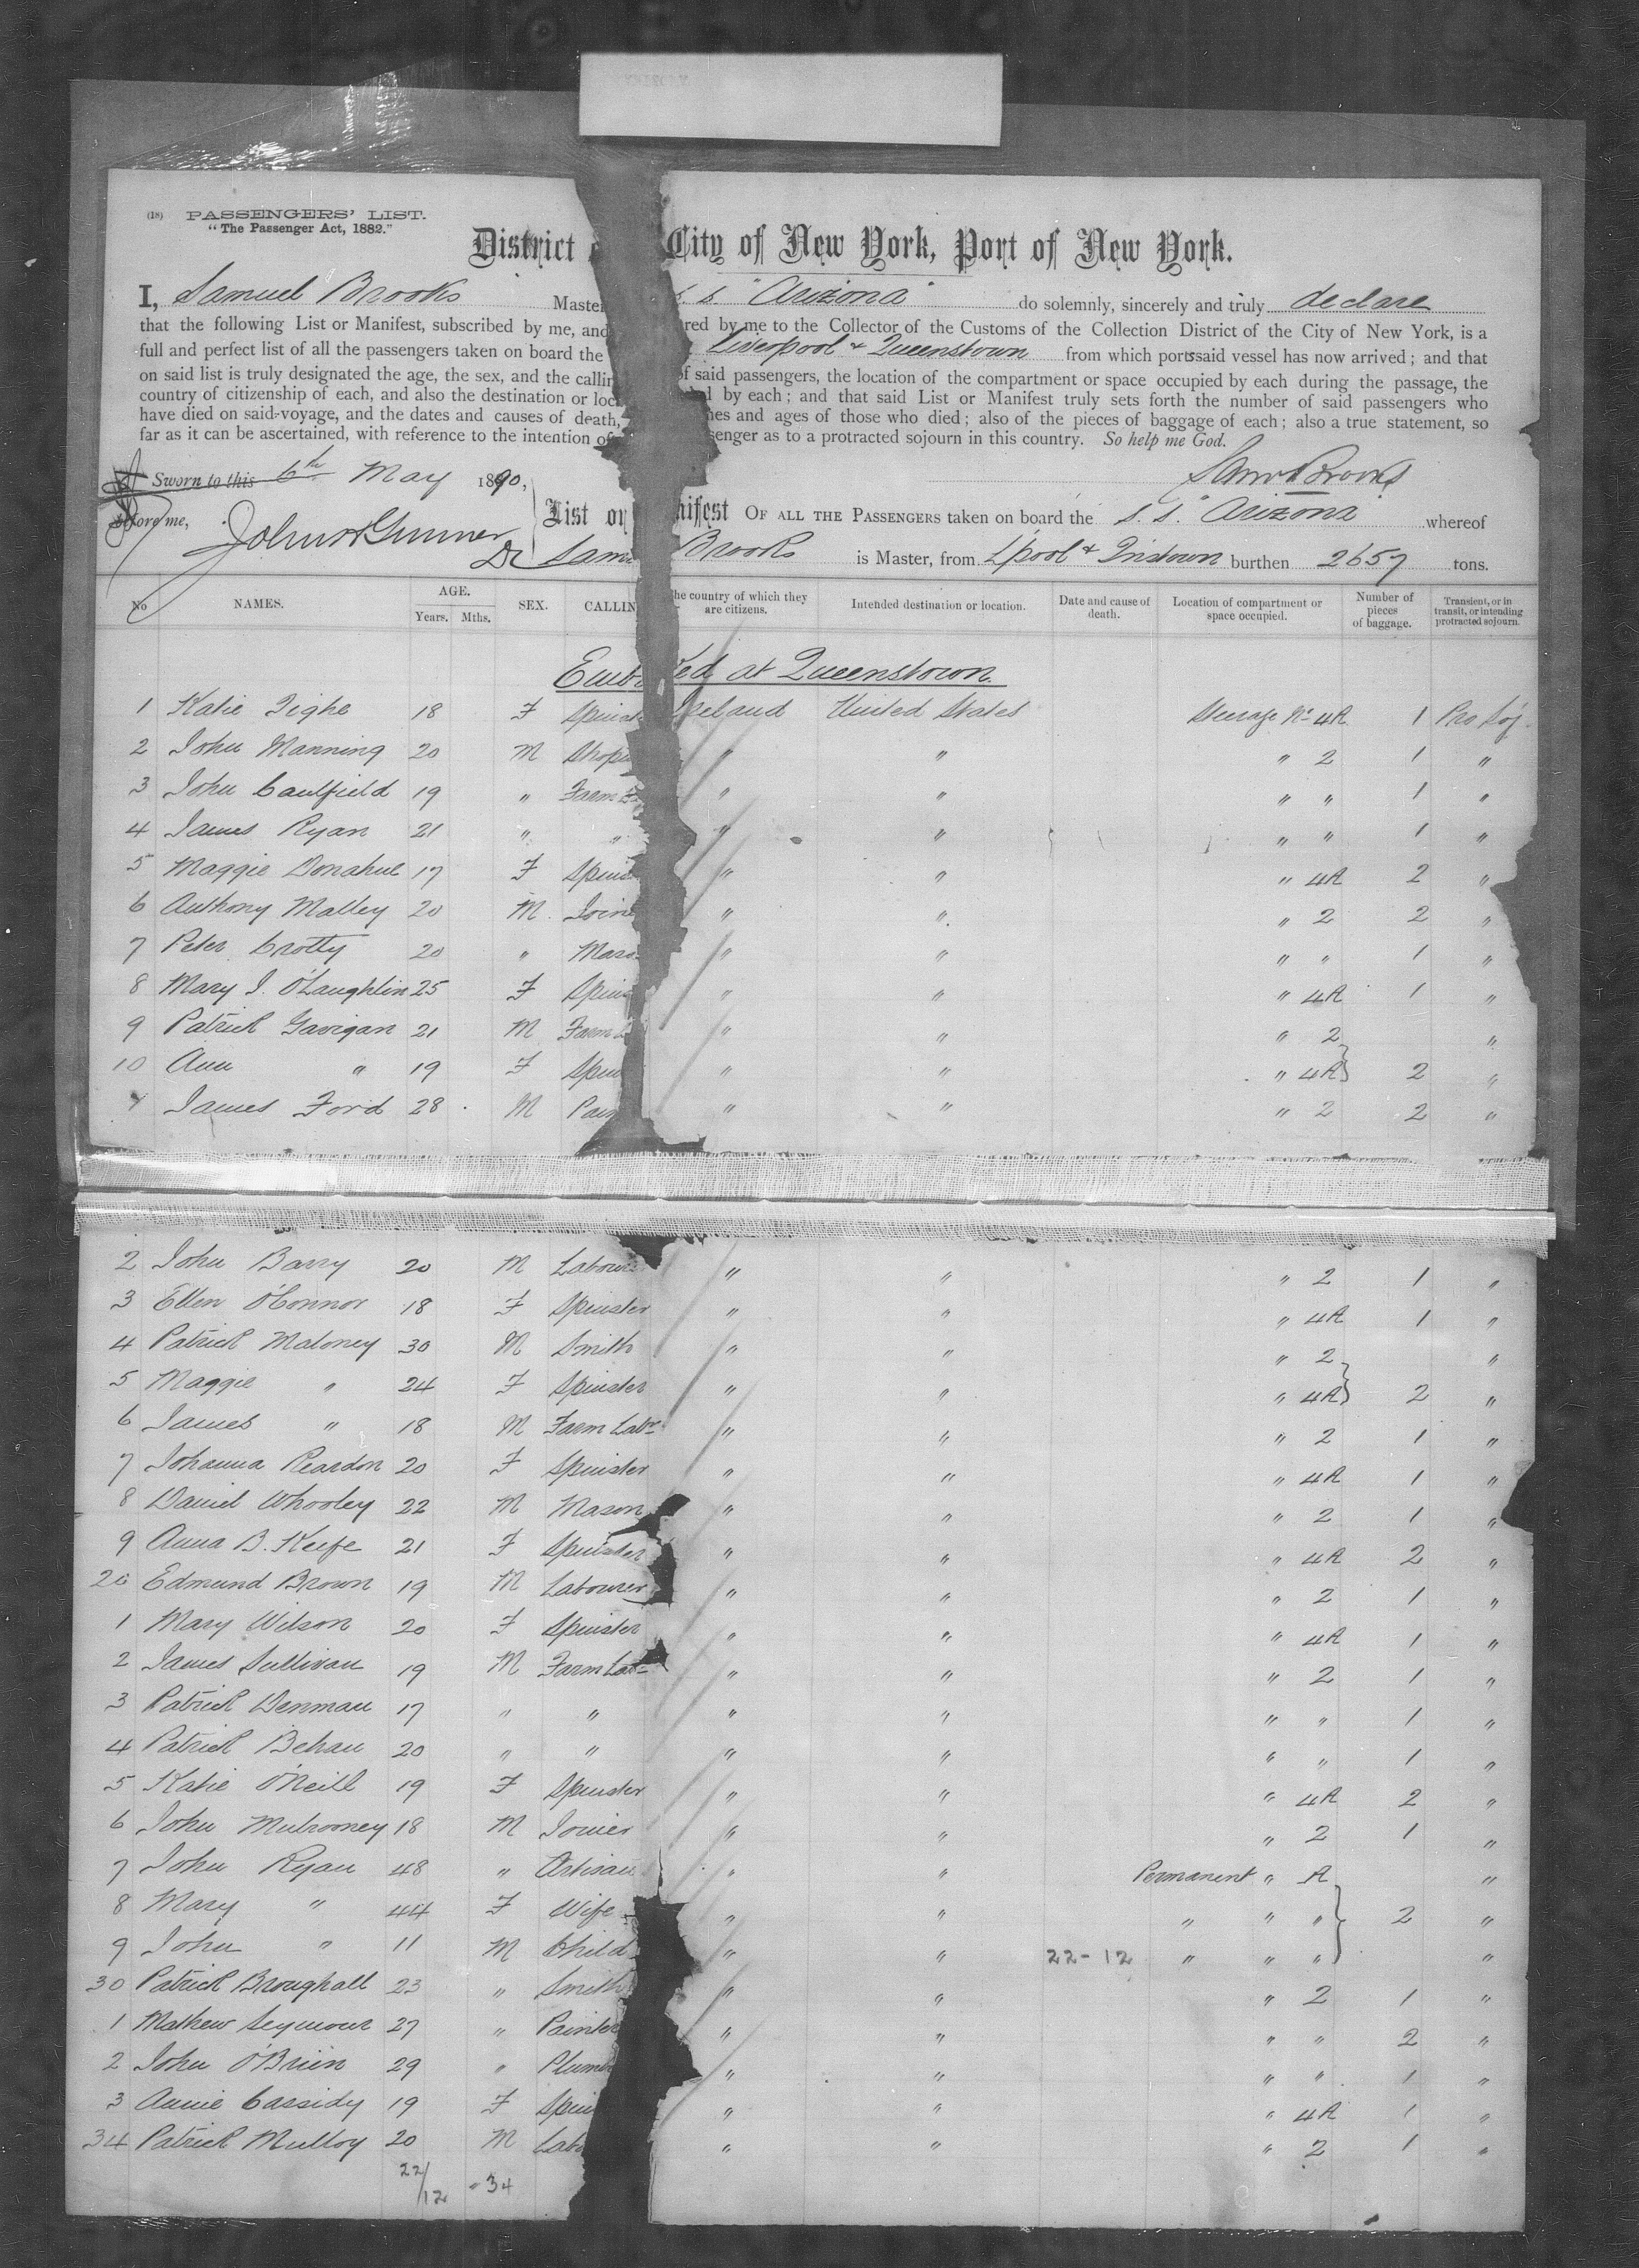 (18) PASSENGERS' LIST.
"The Passenger Act, 1882."
District City of New York, Port of New York.
I, Samuel Brooks Master S. S. "Arizona" do solemnly, sincerely and truly declare
that the following List or Manifest, subscribed by me, and red by me to the Collector of the Customs of the Collection District of the City of New York, is a
full and perfect list of all the passengers taken on board the Liverpool & Queenstown from which ports said vessel has now arrived; and that
on said list is truly designated the age, the sex, and the callin of said passengers, the location of the compartment or space occupied by each during the passage, the
country of citizenship of each, and also the destination or loc d by each; and that said List or Manifest truly sets forth the number of said passengers who
have died on said voyage, and the dates and causes of death, mes and ages of those who died; also of the pieces of baggage of each; also a true statement, so
far as it can be ascertained, with reference to the intention of senger as to a protracted sojourn in this country. So help me God.
Sworn to this 6th May 1890, Saml Brooks
before me, List or nifest OF ALL THE PASSENGERS taken on board the S. S. "Arizona" whereof
Sam Brooks is Master, from L'pool & Q'nstown burthen 2657 tons.
No NAMES. AGE. Years. Mths. SEX. CALLIN he country of which they are citizens. Intended destination or location. Date and cause of death. Location of compartment or space occupied. Number of pieces of baggage. Transient, or in transit, or intending protracted sojourn.
Emb ked at Queenstown
1 Katie Tighe 18 F Spinst Ireland United States Steerage No 4R 1 Pro Soj.
2 John Manning 20 M Shop " " " 2 1 "
3 John Caulfield 19 " Farm " " " " 1 "
4 James Ryan 21 " " " " " " 1 "
5 Maggie Donahue 17 F Spins " " " 4R 2 "
6 Anthony Malley 20 M. Joine " " " 2 2 "
7 Peter Crotty 20 " Maso " " " " 1 "
8 Mary J. O'Laughlin 25 F Spins " " " 4R 1 "
9 Patrick Gavigan 21 M Farm L " " " 2 "
10 Ann " 19 F Spin " " " 4R 2 "
James Ford 28 M Pain " " " 2 2 "
2 John Barry 20 M Laboure " " " 2 1 "
3 Ellen O'Connor 18 F Spinster " " " 4R 1 "
4 Patrick Maloney 30 M Smith " " " 2 "
5 Maggie " 24 F Spinster " " " 4R 2 "
6 James " 18 M Farm Labr " " " 2 1 "
7 Johanna Reardon 20 F Spinster " " " 4R 1 "
8 Daniel Whooley 22 M Mason " " " 2 1 "
9 Anna B. Keefe 21 F Spinster " " " 4R 2 "
20 Edmund Brown 19 M Labourer " " " 2 1 "
1 Mary Wilson 20 F Spinster " " " 4R 1 "
2 James Sullivan 19 M Farm Lab " " " 2 1 "
3 Patrick Denman 17 " " " " " " 1 "
4 Patrick Behan 20 " " " " " " 1 "
5 Katie O'Neill 19 F Spinster " " " 4R 2 "
6 John Mulrooney 18 M Joiner " " " 2 1 "
7 John Ryan 48 " Artisan " " Permanent " R "
8 Mary " 44 F Wife " " " " " 2 "
9 John " 11 M Child " " 22-12 " " " "
30 Patrick Broughall 23 " Smith " " " 2 1 "
1 Mathew Seymour 27 " Painter " " " " 2 "
2 John O'Brien 29 " Plumb " " " " 1 "
3 Annie Cassidy 19 F Spin " " " 4R 1 "
34 Patrick Mulloy 20 M Labo " " " 2 1 "
22/12 = 34